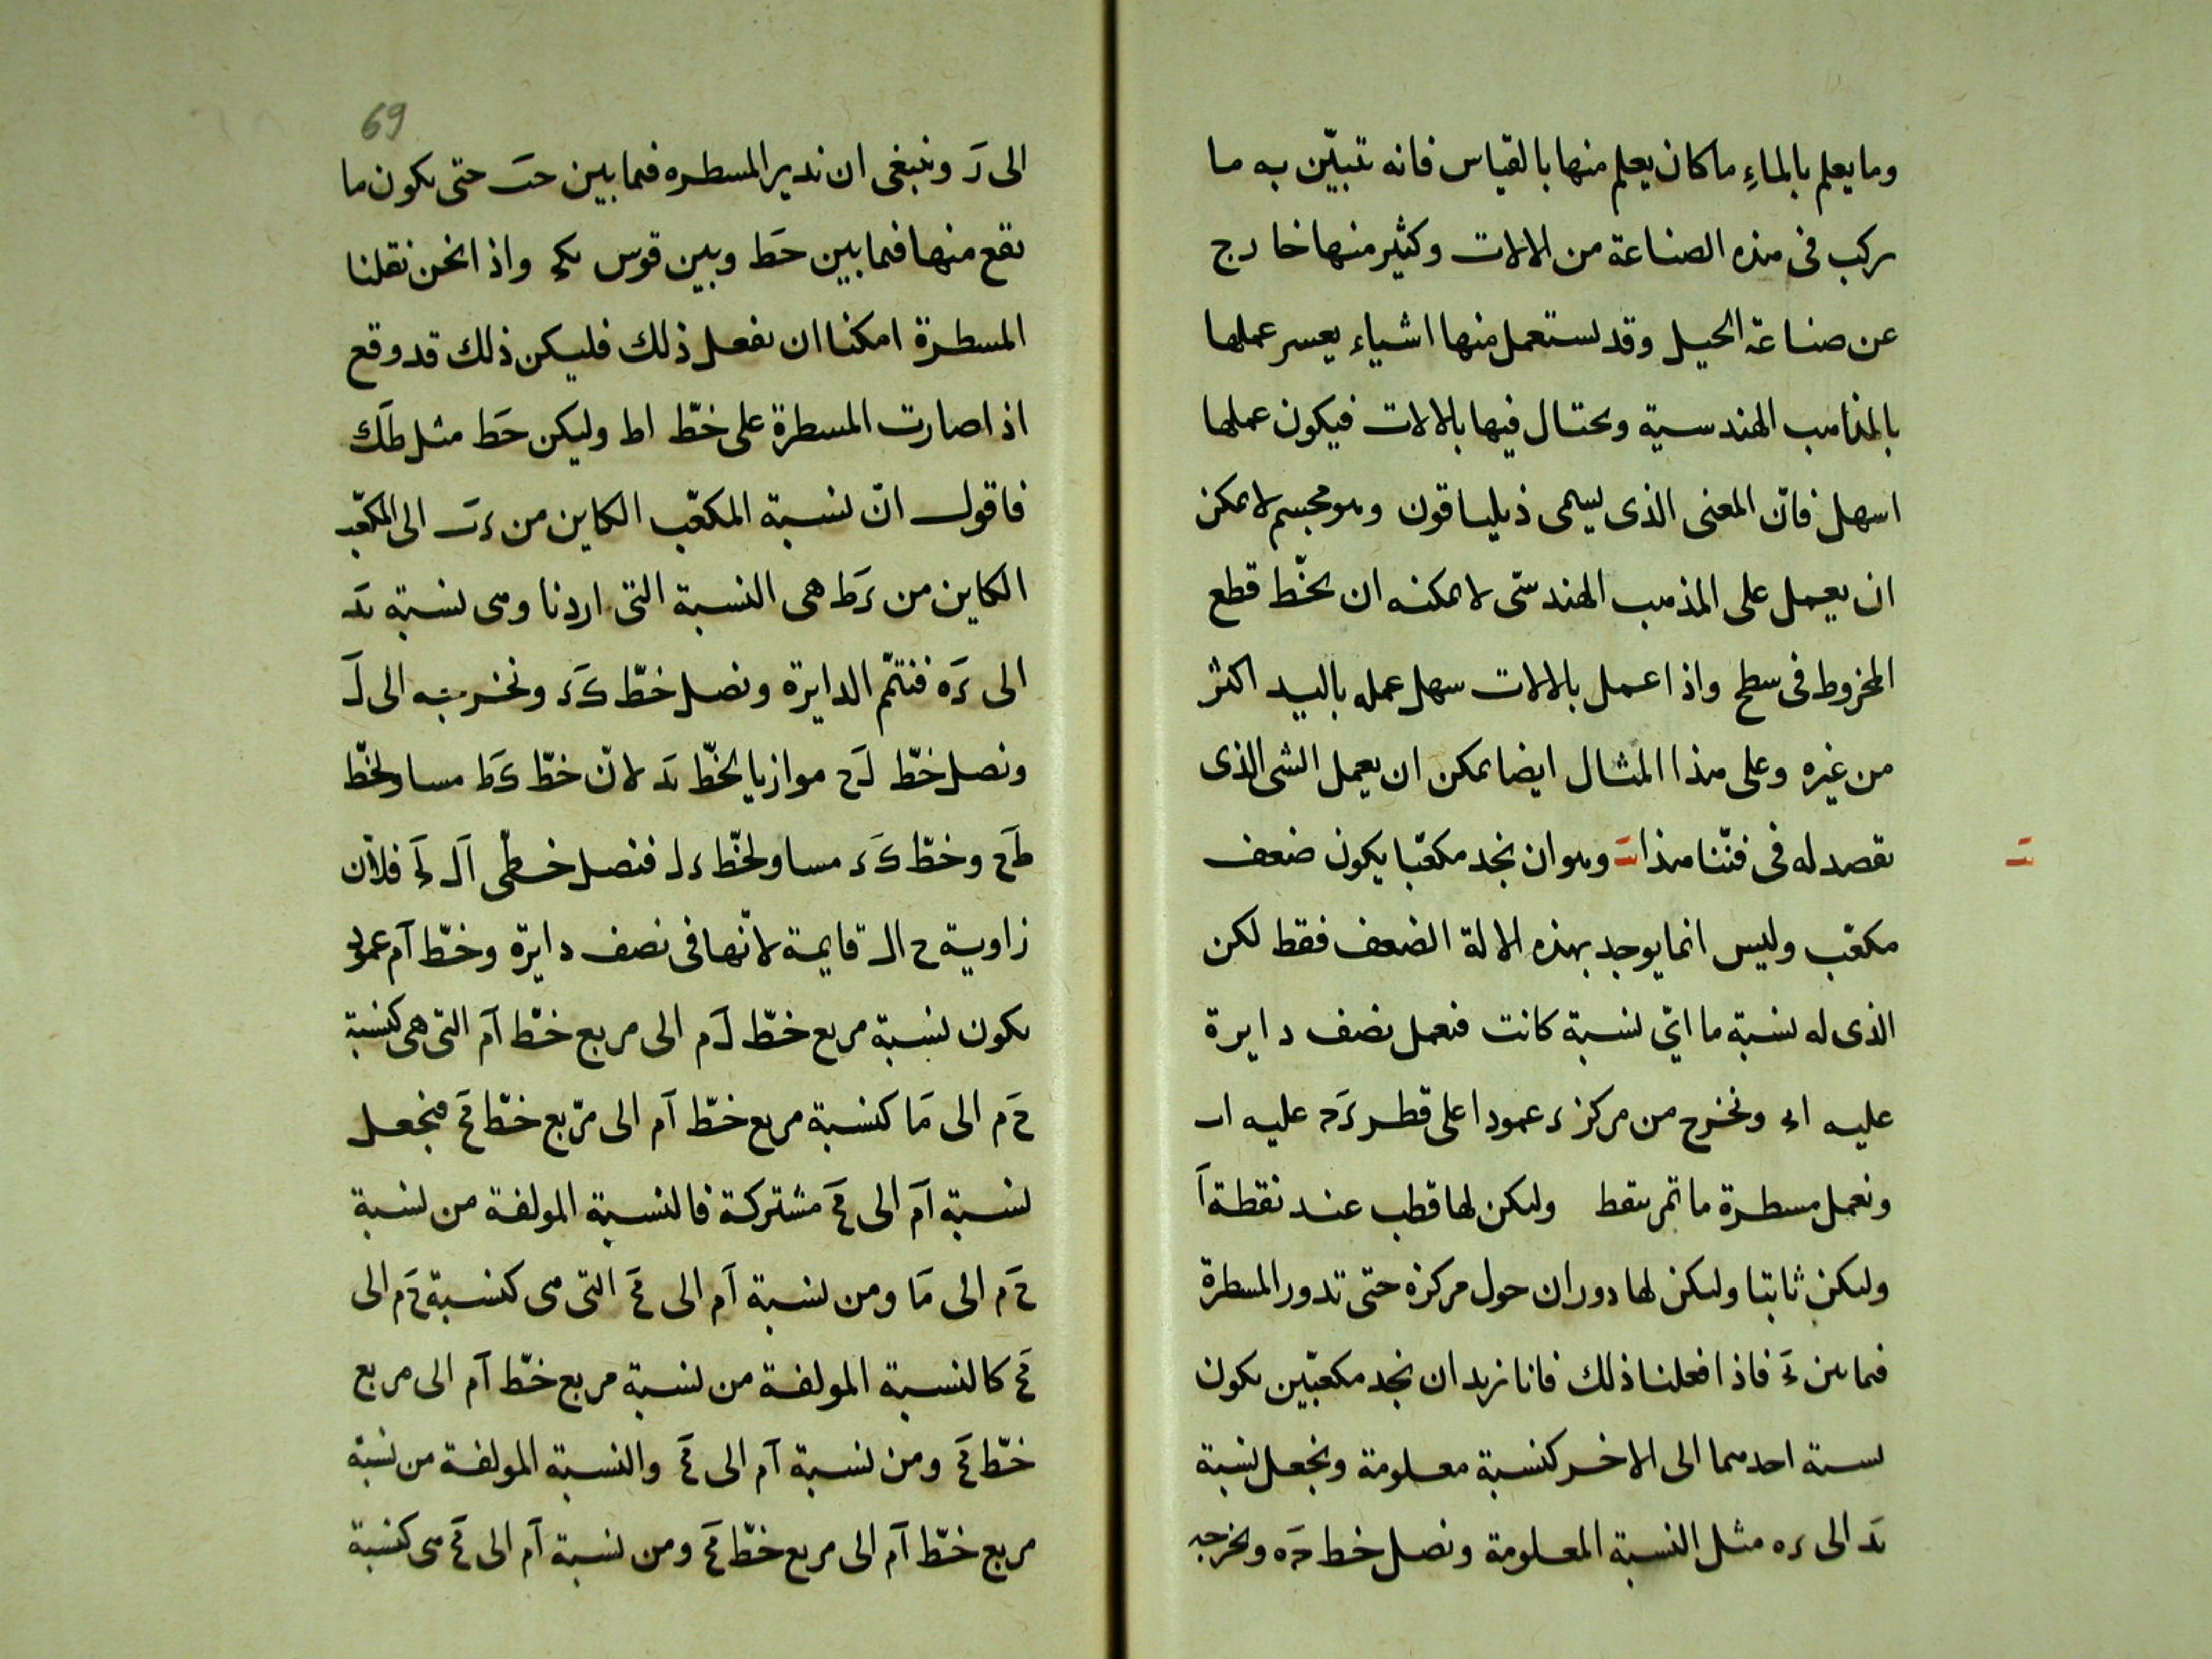 وما يعلم بالماءِ ما كان يعلم منها بالقياس فانه تتبيّن به ما
يركب فى هذه الصناعة من الالات وكثير منها خارج
عن صناعة الحيل وقد يستعمل منها اشياء يعسر عملها
بالمذاهب الهندسية ويحتال فيها بالالات فيكون عملها
اسهل فانّ المعنى الذى يسمى ذيلياقون وهو مجسم لا يمكن
ان يعمل على المذهب الهندسىّ لا يمكنه ان يخّط قطع
المخروط فى سطح واذا عمل بالالات سهل عمله باليد اكثر
من غيره وعلى هذا المثال ايضا يمكن ان يعمل الشى الذى
نقصد له فى فنّنا هذا وهو ان نجد مكعّبا يكون ضعف
مكعّب وليس انما يوجد بهذه الالة الضعف فقط لكن
الذى له نسبة ما اىّ نسبة كانت فنعمل نصف دايرة
عليه اى ونخرج من مركز ء عمودا على قطر ءَح عليه اب
ونعمل مسطرة ما تمر بنقط وليكن لها قطب عند نقطة آ
وليكن ثابتا وليكن لها دوران حول مركزه حتى تدور المسطرة
فيما بين ءَ فاذا فعلنا ذلك فانا نريد ان نجد مكعّبين يكون
نسبة احدهما الى الاخر كنسبة معلومة ونجعل نسبة
بَد الى ءه مثل النسبة المعلومة ونصل خط حَه ونخرجه
69
الى رَ وينبغى ان ندير المسطره فيما بين حبَ حتى يكون ما
يقع منها فيما بين حَط وبين قوس بكء واذا نحن نقلنا
المسطرة امكننا ان نفعل ذلك فليكن ذلك قد وقع
اذا صارت المسطرة على خطّ اط وليكن حَط مثل طَك
فاقول انّ نسبة المكعّب الكاين من ءبَ الى المكعّب
الكاين من ءَط هى النسبة التى اردنا وهى نسبة بَد
الى ءَه فنتمّم الدايرة ونصل خطّ كَء ونخرجه الى لَ
ونصل خطّ لَح موازيا لخطّ بَد لانّ خطّ كَط مساو لخطّ
طَح وخطّ كَء مساو لخطّ ءل فنصل خطى آل لَء فلانّ
زاوية ح ال قايمة لانّها فى نصف دايرة وخطّ آم عمود
يكون نسبة مربع خطّ لَم الى مربع خطّ آم التى هى كنسبة
حَم الى مَا كنسبة مربع خطّ آم الى مربع خطّ مَح فنجعل
نسبة آم الى مَح مشتركة فالنسبة المولفة من نسبة
حَم الى مَا ومن نسبة آم الى مَح التى هى كنسبة حَم الى
مَح كالنسبة المولفة من نسبة مربع خطّ آم الى مربع
خطّ مَح ومن نسبة آم الى مَح والنسبة المولفة من نسبة
مربع خطّ آم الى مربع خطّ مَح ومن نسبة آم الى مَح هى كنسبة